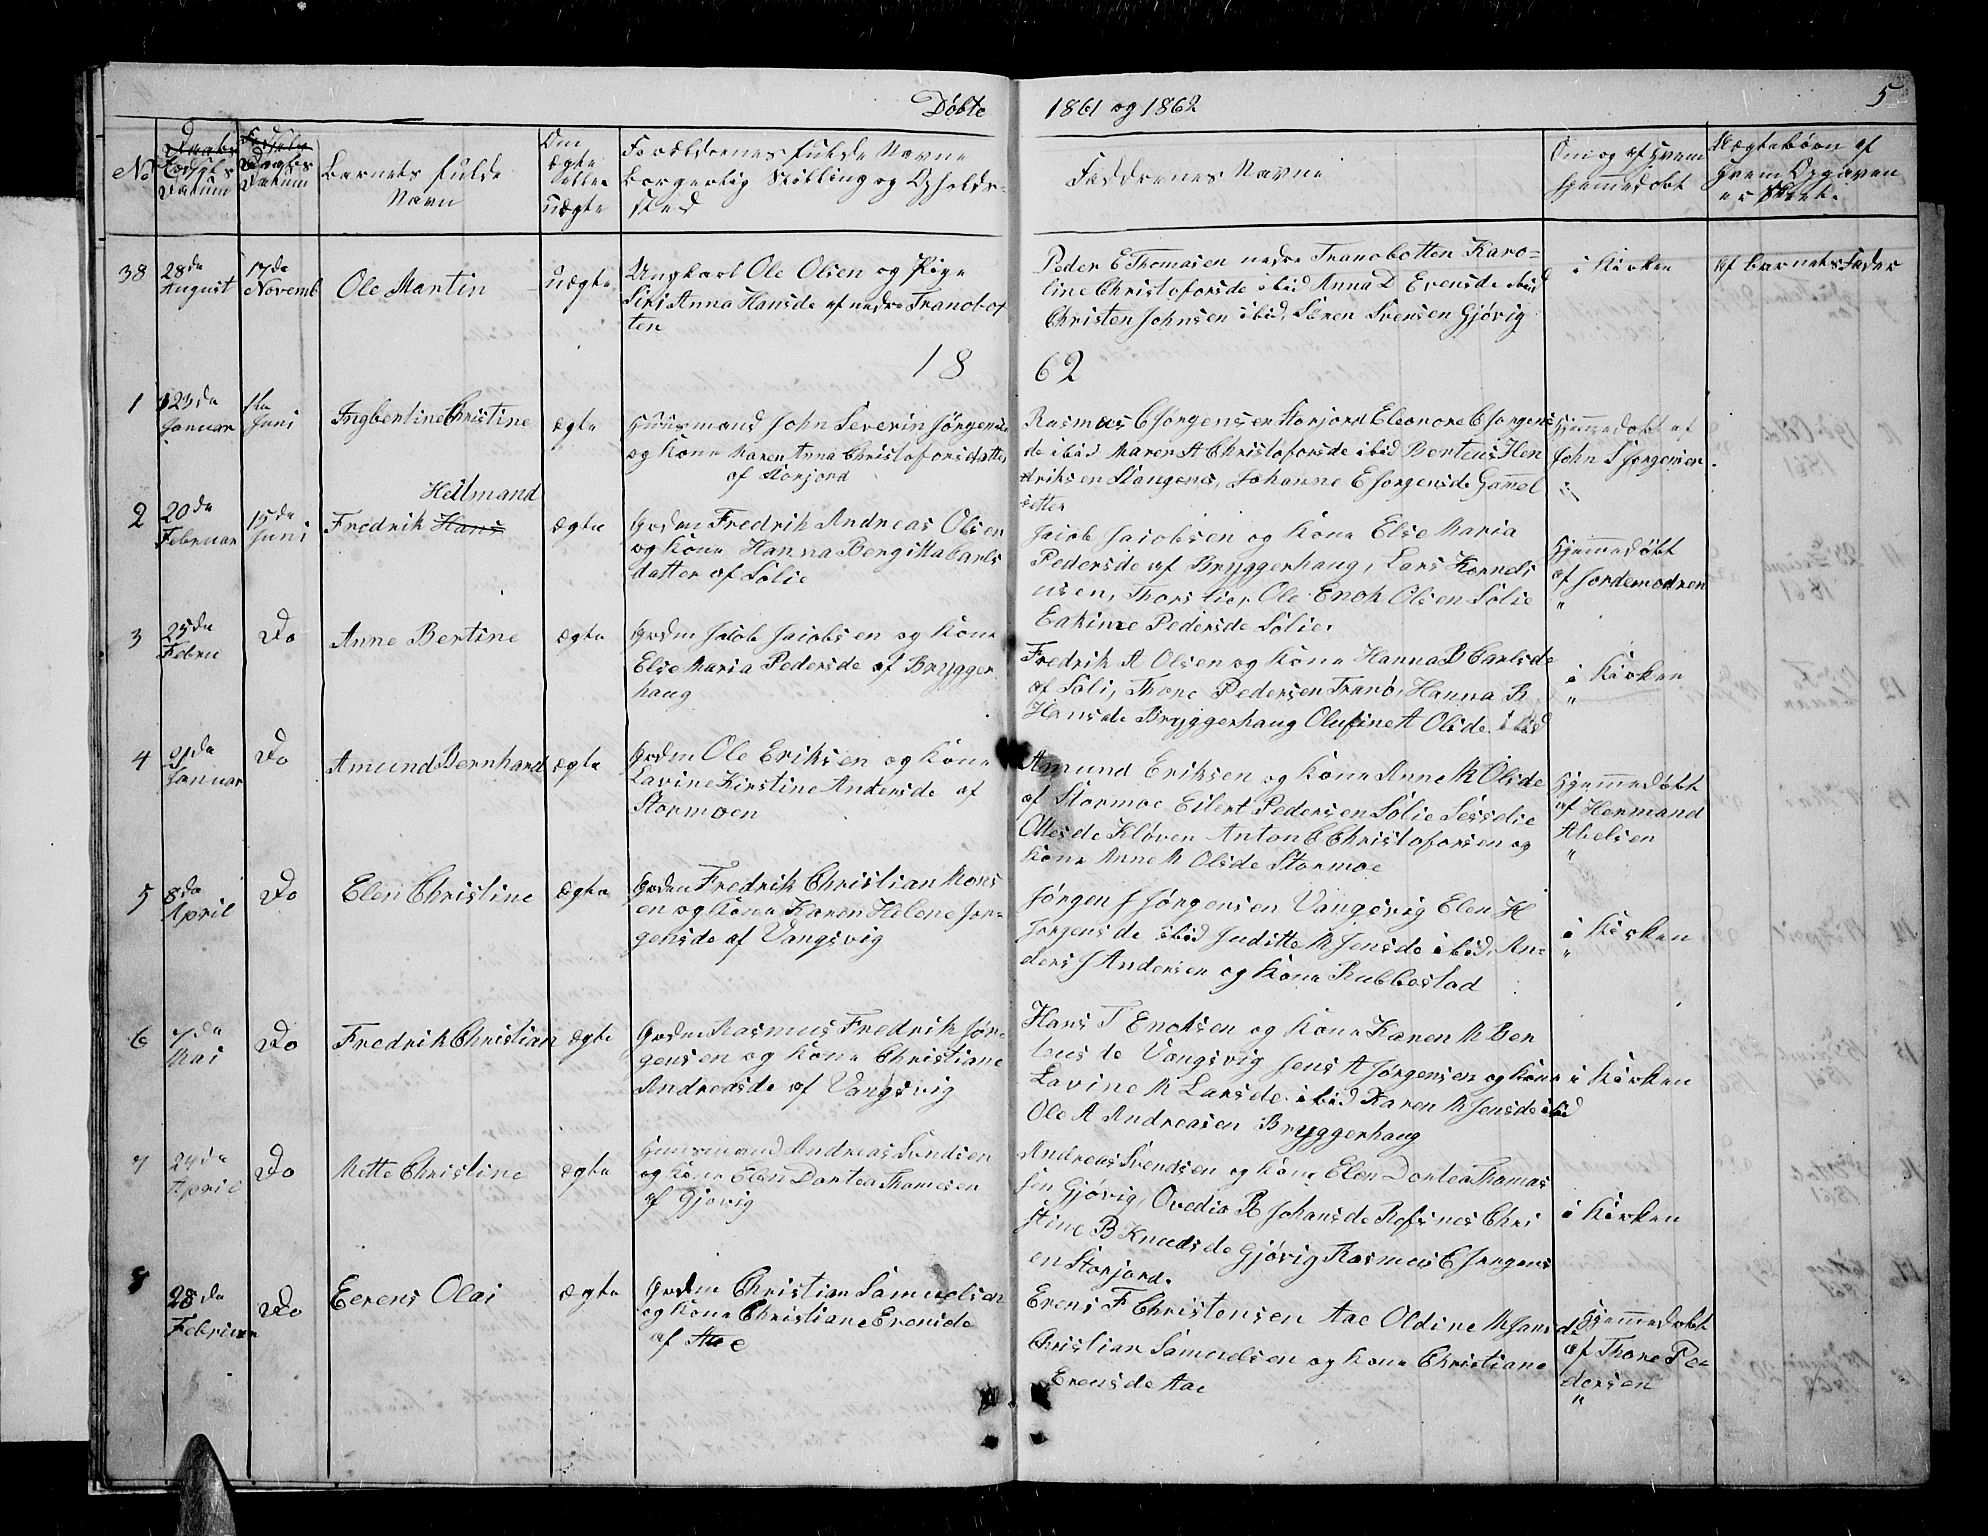 Døbte 1861 og 1862 5
No
Fødsels Datum
Daabs Datum
Barnets fulde Navn
Om ægte eller uægte
Forældrenes fulde Navne
borgerlig Stilling og Opholds-
sted
Faddrenes Navne
Om og af Hvem
hjemmedøbt
Uægtebørn af
Hvem Opgaven
er skeet.
38 28da August 17da Novemb Ole Martin uægte
Ungkarl Ole Olsen og Pige
Siri Anna Hansde af nedre Tranobot
ten
Peder E Thomasen nedre Tranobotten Karo-
line Christoforsde ibid Anna D Evensde ibid
Christen Johnsen ibid, Sören Svensen Gjövig
i Kirken
Af barnets Fader
1862
1 23da Januar 1ta Juni Ingbertine Christine ægte
Huusmand John Severin Jörgensen
og Kone Maren Anna Christofersdatter
af Storjord
Rasmus C Jorgensen Storjord Eleonore C Jorgens
de ibid Maren A Christoforsde ibid Berteus Hen
driksen Stangenes, Johanne E Jorgensde Gammel
setter
Hjemmedøbt af
John S Jorgensen
"
2 20da Februar 15da Juni Fredrik Hans Hellmand ægte
Grdm Fredrik Andreas Olsen
og Kone Hanna Bergitta Carls
datter af Solie
Jacob Jacobsen og Kone Else Maria
Pedersde af Bryggerhaug, Lars Korneli
usen, Thorslie, Ole Enok Olsen Solie
Eakime Pedersde Solie.
Hjemmedøbt
af Jordemodren
"
3 25da Febru Do Anne Bertine ægte
Grdm Jacob Jacobsen og Kone
Else Maria Pedersde af Brygger
haug
Fredrik A Olsen og Kone Hanna B Carlsde
af Soli, Thore Pedersen Tranö, Hanna B
Hansde Bryggerhaug Olufine A Olsde ibid
i Kirken
"
4 21da Januar Do Amund Bernhard ægte
Grdm Ole Eriksen og Kone
Lavine Kirstine Andersde af
Stormoen
Amund Eriksen og Kone Anne M Olsde
af Stormoe Eilert Pedersen Solie Sesselie
Olesde Klöven Anton C Christofersen og
Kone Anne M Olsde Stormoe
Hjemmedøbt
af Hermand
Abelsen
"
5 8da April Do Elen Christine ægte
Grdm Fredrik Christian Mons
en og Kone Karen Helene Jor-
gensde af Vangsvig
Jørgen J Jørgensen Vangsvig Elen H
Jorgensde ibid Juditte M Jensde ibid, An-
ders J Andersen og Kone Rubbestad
i Kirken
"
6 7da Mai Do Fredrik Christian ægte
Grdm Rasmus Fredrik Jör-
gensen og Kone Christiane
Andreasde af Vangsvig
Hans T Enoksen og Kone Karen M Ber
teusde Vangsvig Jens A Jørgensen og Kone
Lavine M Larsde ibid Karen M Jensde ibid
Ole A Andreasen Bryggerhaug
i Kirken
7 24da April Do Mette Christine ægte
Huusmand Andreas Svendsen
og Kone Elen Dortea Thomesen
af Gjövig
Andreas Svendsen og Kone Elen Dortea Thomas
sen Gjövig, Ovedia B Johansde Rofsnes Chri
stine B Knudsde Gjövig Rasmus C Jørgens
en Storjord.
i Kirken
8 28da Februar Do Eerens Olai ægte
Grdm Christian Samuelsen
og Kone Christiane Erensde
af Aae
Erens F Christensen Aae Oldine M Jansde
Christian Samuelsen og Kone Christiane
Erensde Aae
Hjemmedøbt
af Thore Pe-
dersen
"